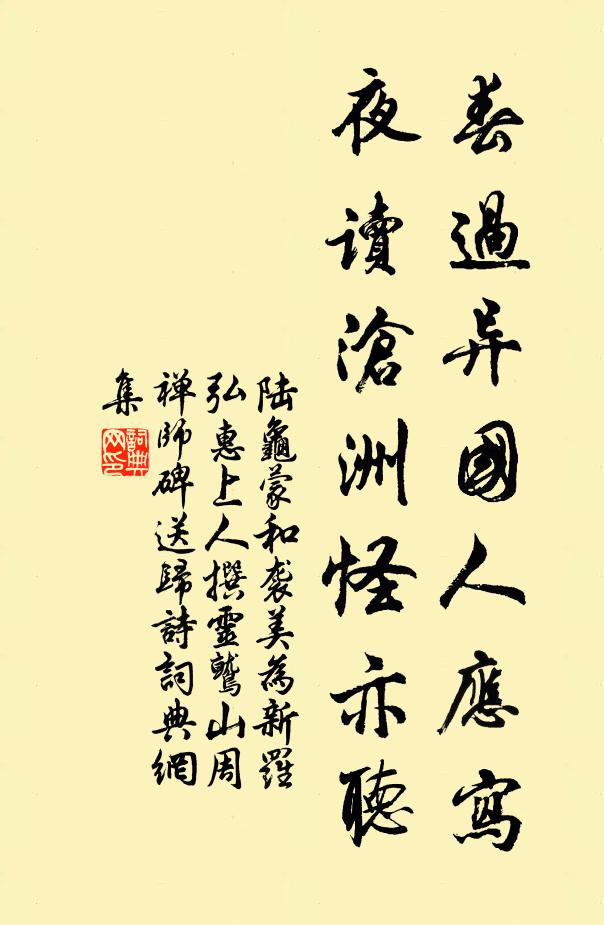 春過异國人應寫
夜讀滄洲怪亦聽
陸龜蒙和袭美為新羅
弘惠上人撰靈鷲山周
禅師碑送歸詩詞典網
集
詞典
网印